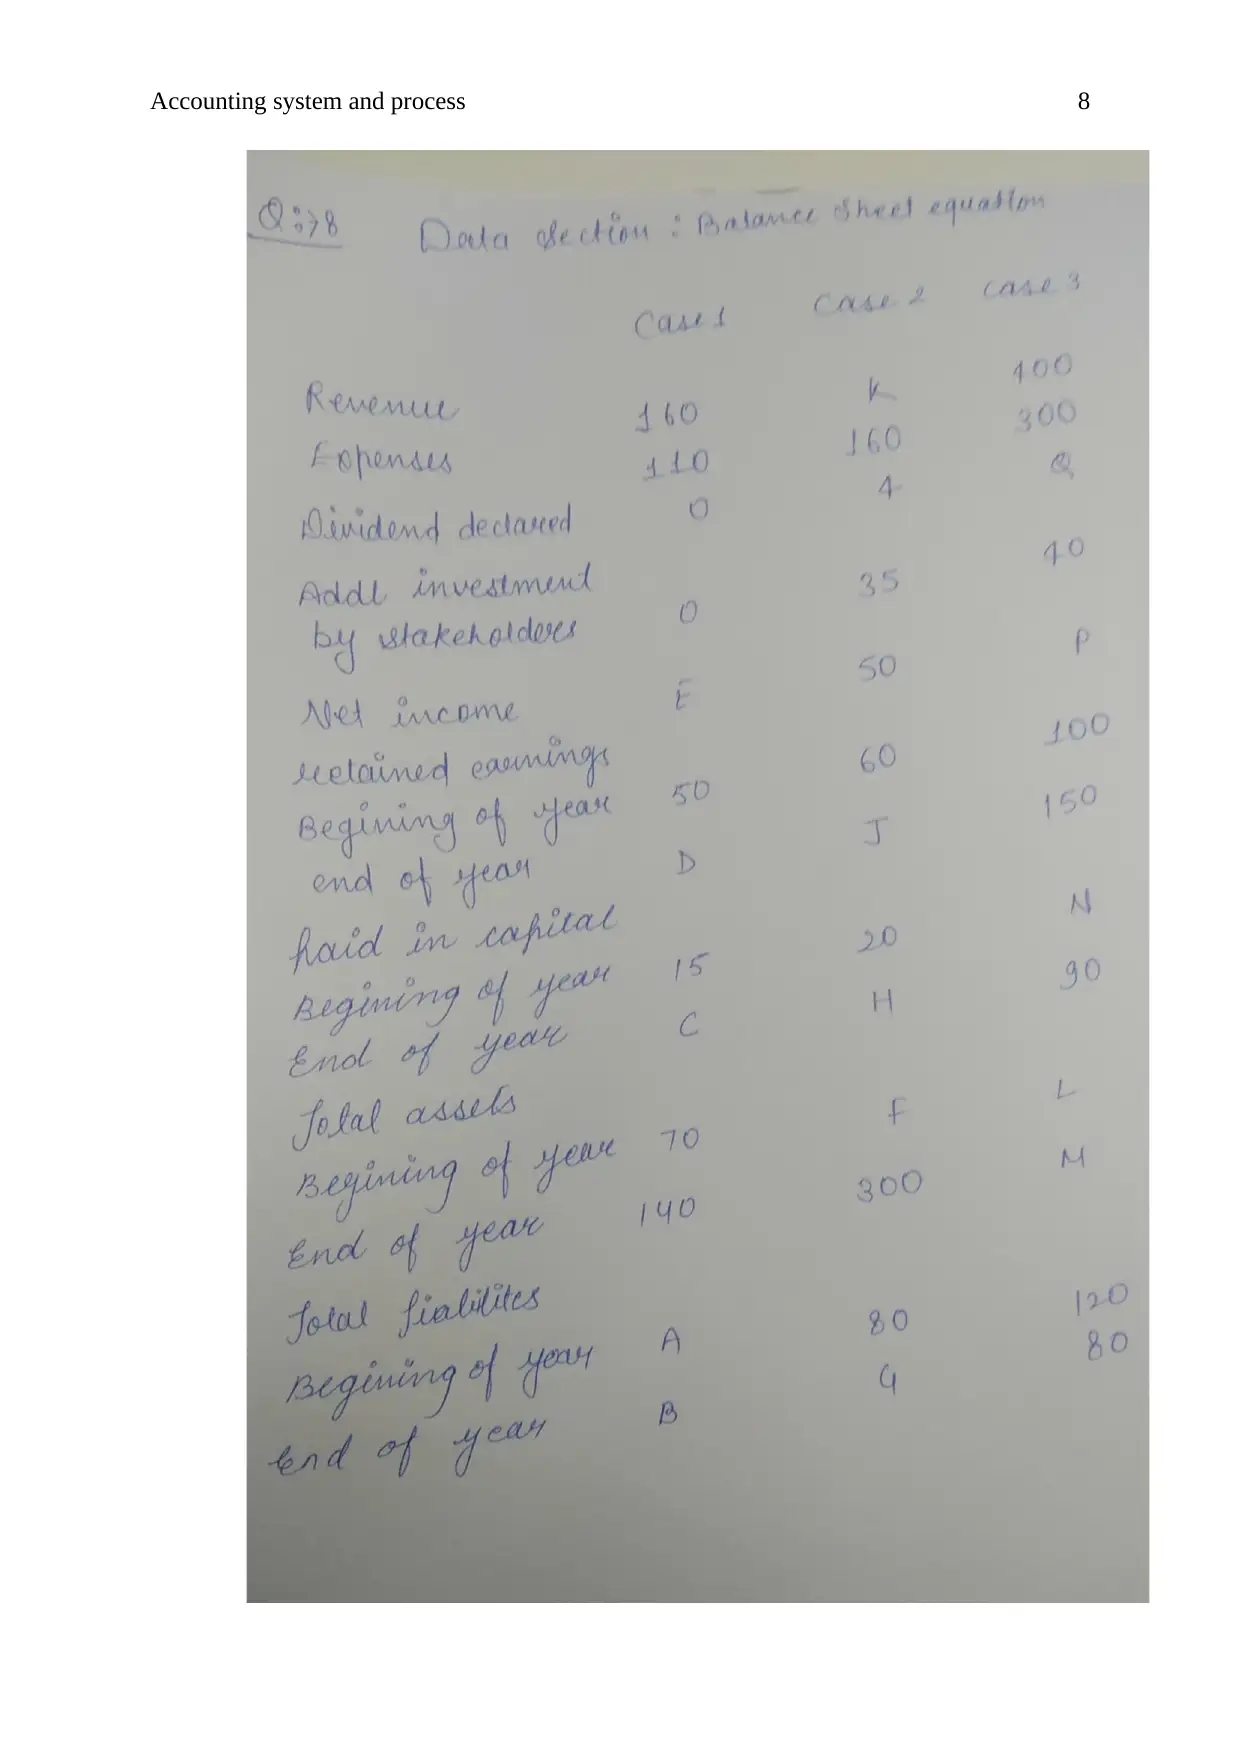 Accounting system and process 8
Q:78 Data section : Balance sheet equation
Case 1 Case 2 Case 3
Revenue 160 K 400
Expenses 110 160 300
Dividend declared 0 4 Q
Addl investment
by stakeholders 0 35 40
Net income E 50 P
retained earnings
Begining of year 50 60 100
end of year D J 150
Paid in capital
Begining of year 15 20 N
End of year C H 90
Total assets
Begining of year 70 F L
End of year 140 300 M
Total liabilites
Begining of year A 80 120
End of year B G 80